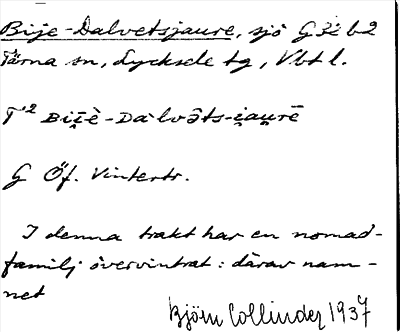 Bije-Dalvetsjaure, sjö G3i b2
Tärna sn, Lycksele tg, Vbt l.
T'2 Bi̮ɛ̄è-Dàlvəts-i̯au̯rē
G Öf. Vintertr.
I denna trakt har en nomad-
familj övervintrat: därav nam-
net
Björn Collinder 1937